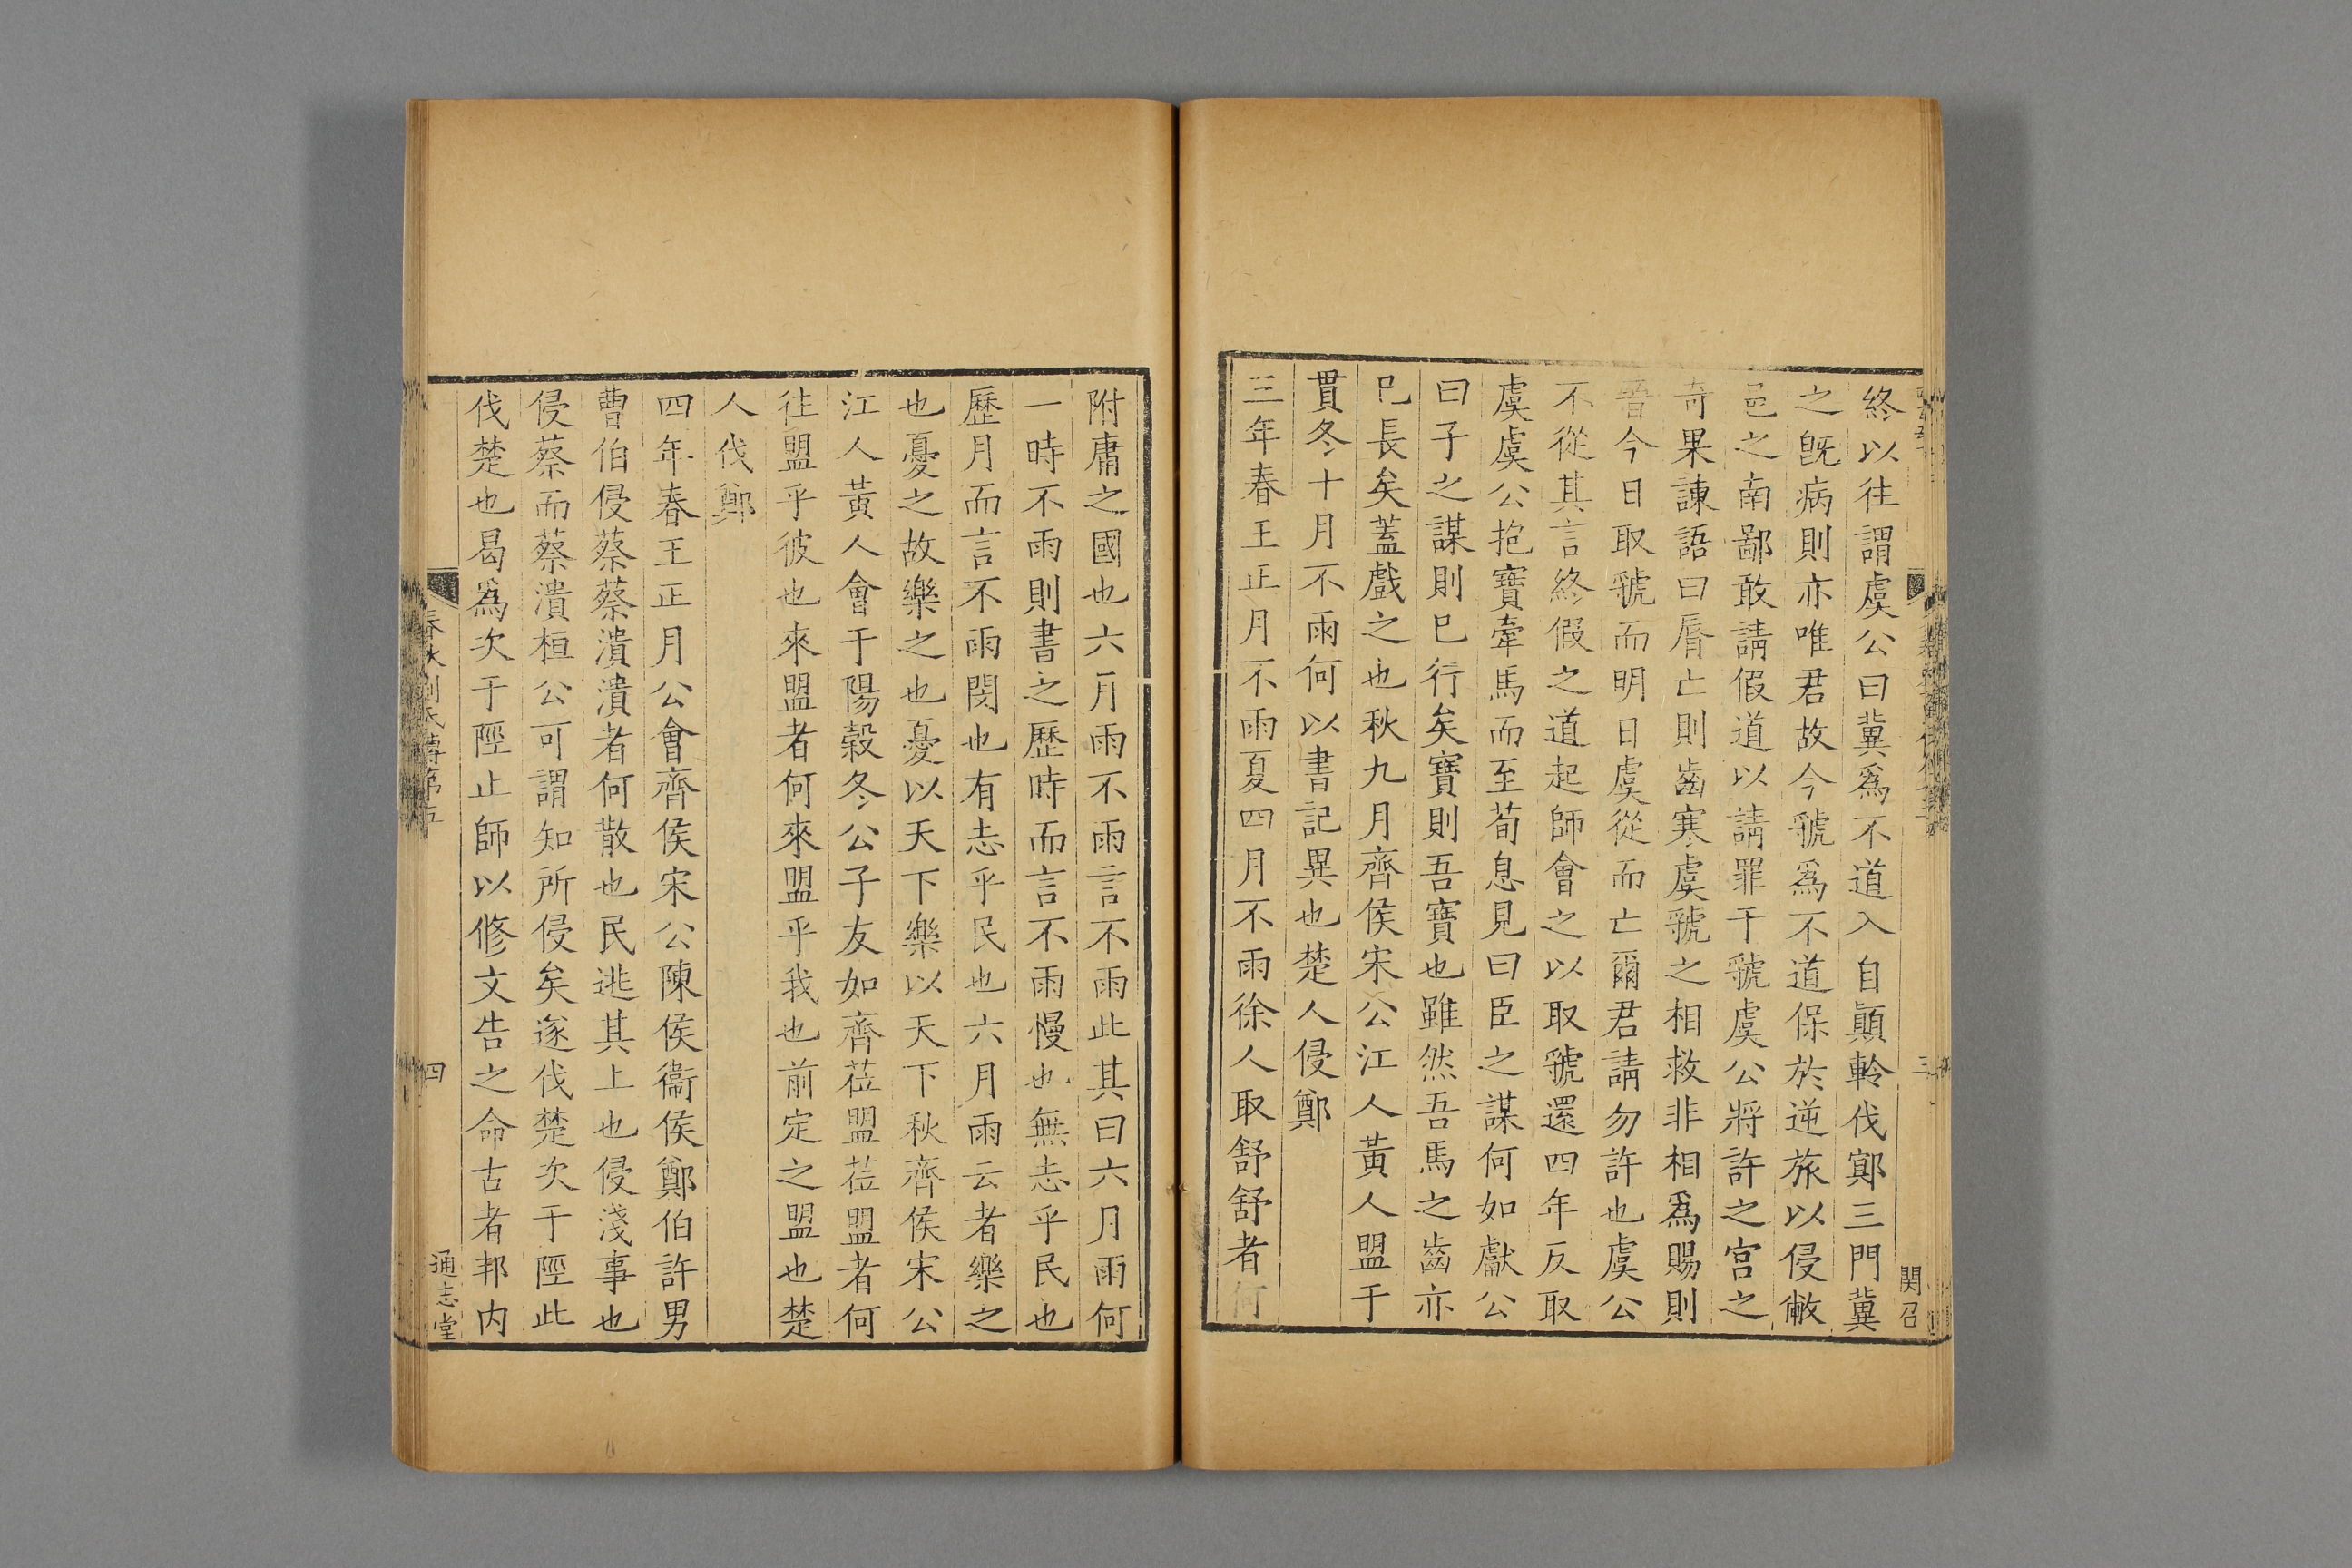 終以往謂虞公曰冀爲不道入自顛軨伐鄍三門冀
之旣病則亦唯君故今虢爲不道保於逆旅以侵敝
邑之南鄙敢請假道以請罪于虢虞公將許之宮之
奇果諫語曰脣亡則齒寒虞虢之相救非相爲賜則
晉今日取虢而明日虞從而亡爾君請勿許也虞公
不從其言終假之道起師會之以取虢還四年反取
虞虞公抱寶牽馬而至荀息見曰臣之謀何如獻公
曰子之謀則已行矣寶則吾寶也雖然吾馬之齒亦
已長矣蓋戲之也秋九月齊侯宋公江人黃人盟于
貫冬十月不雨何以書記異也楚人侵鄭
三年春王正月不雨夏四月不雨徐人取舒舒者何
三
関召
附庸之國也六月雨不雨言不雨此其曰六月雨何
一時不雨則書之歷時而言不雨慢也無志乎民也
歷月而言不雨閔也有志乎民也六月雨云者樂之
也憂之故樂之也憂以天下樂以天下秋齊侯宋公
江人黃人會于陽穀冬公子友如齊莅盟莅盟者何
往盟乎彼也來盟者何來盟乎我也前定之盟也楚
人伐鄭
四年春王正月公會齊侯宋公陳侯衞侯鄭伯許男
曹伯侵蔡蔡潰潰者何散也民逃其上也侵淺事也
侵蔡而蔡潰桓公可謂知所侵矣遂伐楚次于陘此
伐楚也曷爲次于陘止師以修文告之命古者邦内
春秋劉氏傳第五
四
通志堂